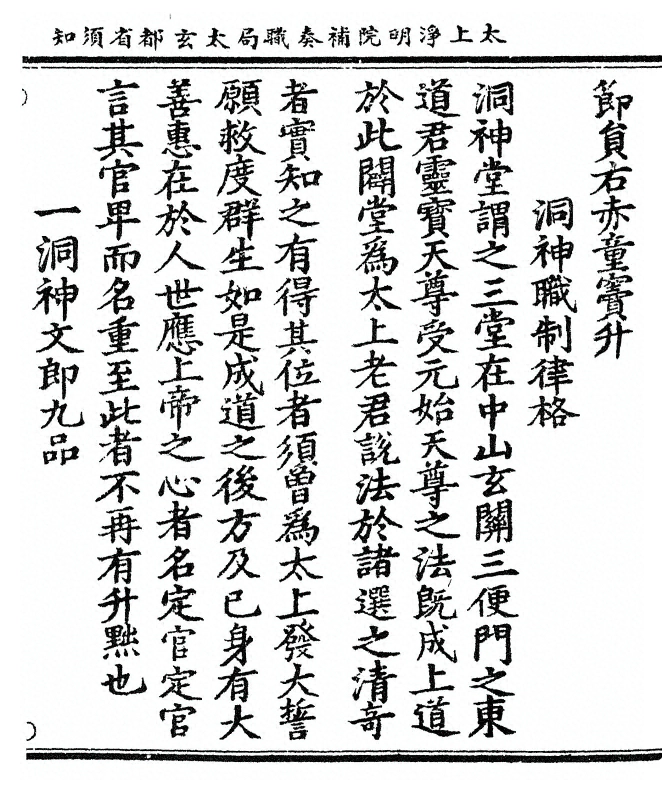 太上淨明院補奏職局太玄都省須知
節貟右赤童寶升
洞神職制律格
洞神堂謂之三堂在中山玄關三便門之東
道君靈寶天尊受元始天尊之法旣成上道
於此闢堂爲太上老君說法於諸選之清竒
者實知之有得其位者須曾爲太上發大誓
願救度群生如是成道之後方及已身有大
善惠在於人世應上帝之心者名定官定官
言其官卑而名重至此者不再有升黜也
一洞神文郎九品